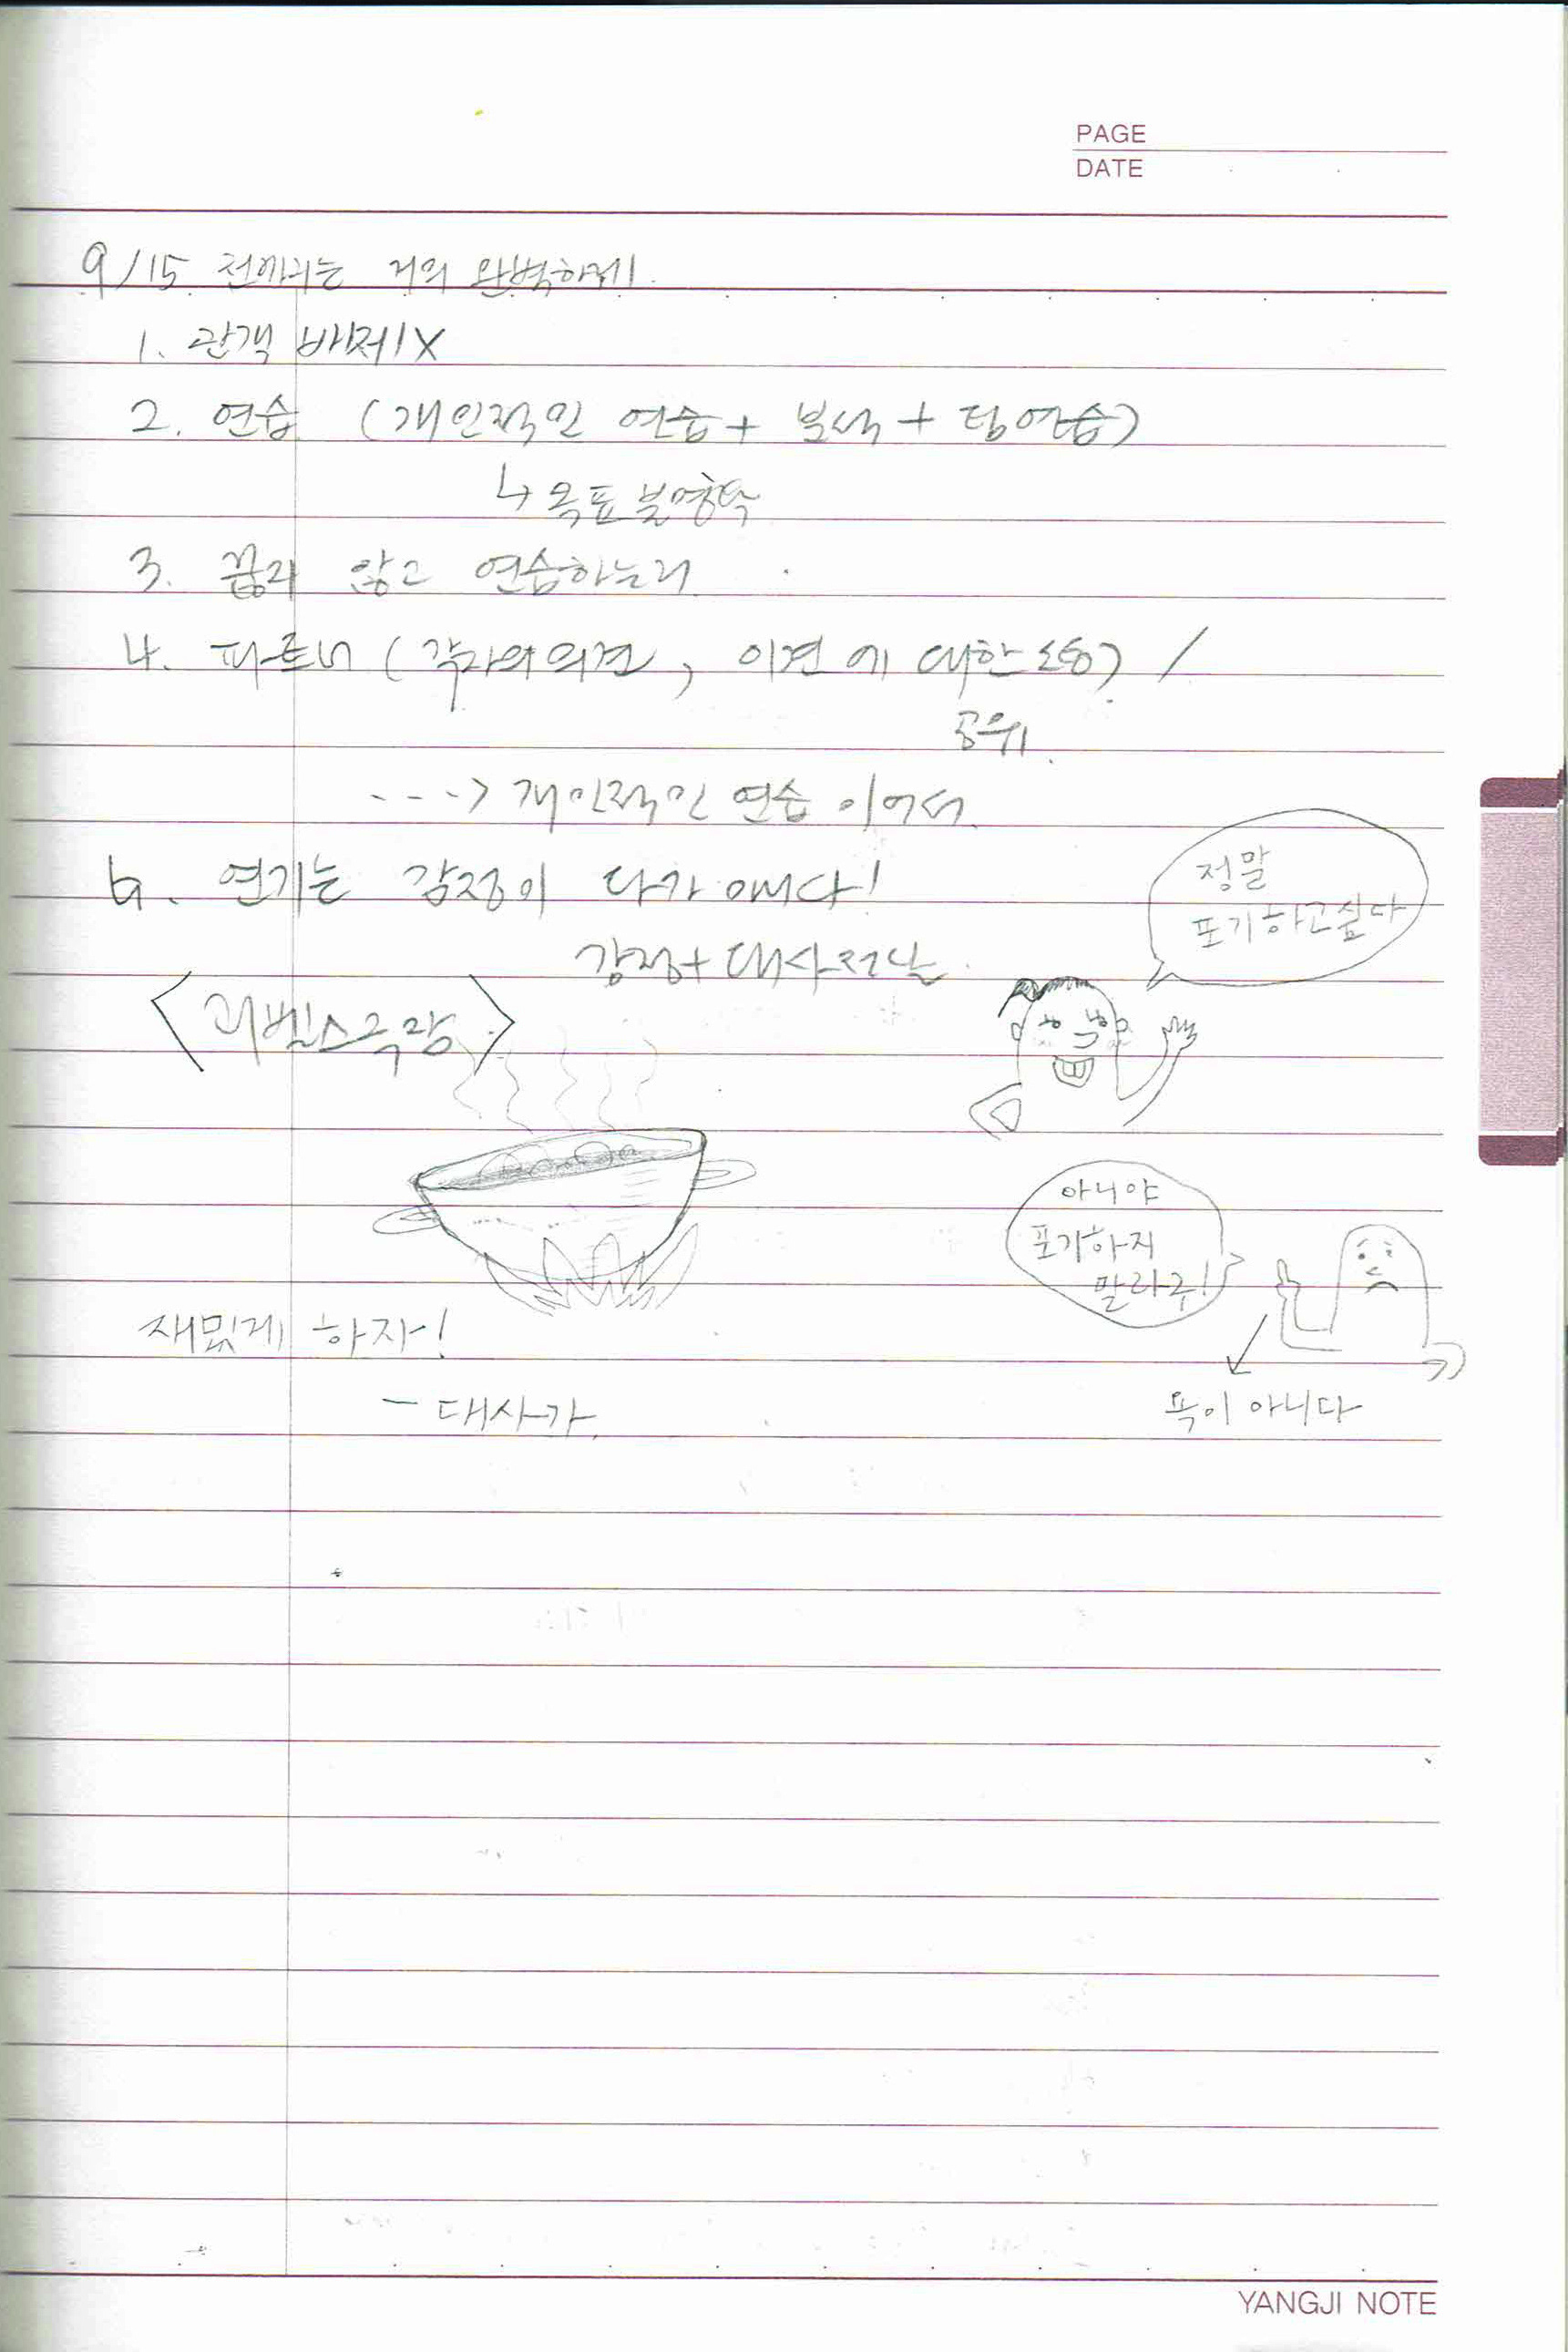 PAGE
DATE
9/15 전에는 거의 완벽하게
1. 관객 배제X
2. 연습 (개인적인 연습 + 분석 + 팀연습)
↳ 목표
3. 않고 연습하는거
4. 파트너 (각자의 의견, 이견에 대한 소통) /
공유
---> 개인적인 연습 이어서
5. 연기는 감정이 다가 아니다!
감정+대사전달
정말
포기하고싶다
아니야
포기하지
말라구!
재밌게 하자!
- 대사가
욕이 아니다
YANGJI NOTE